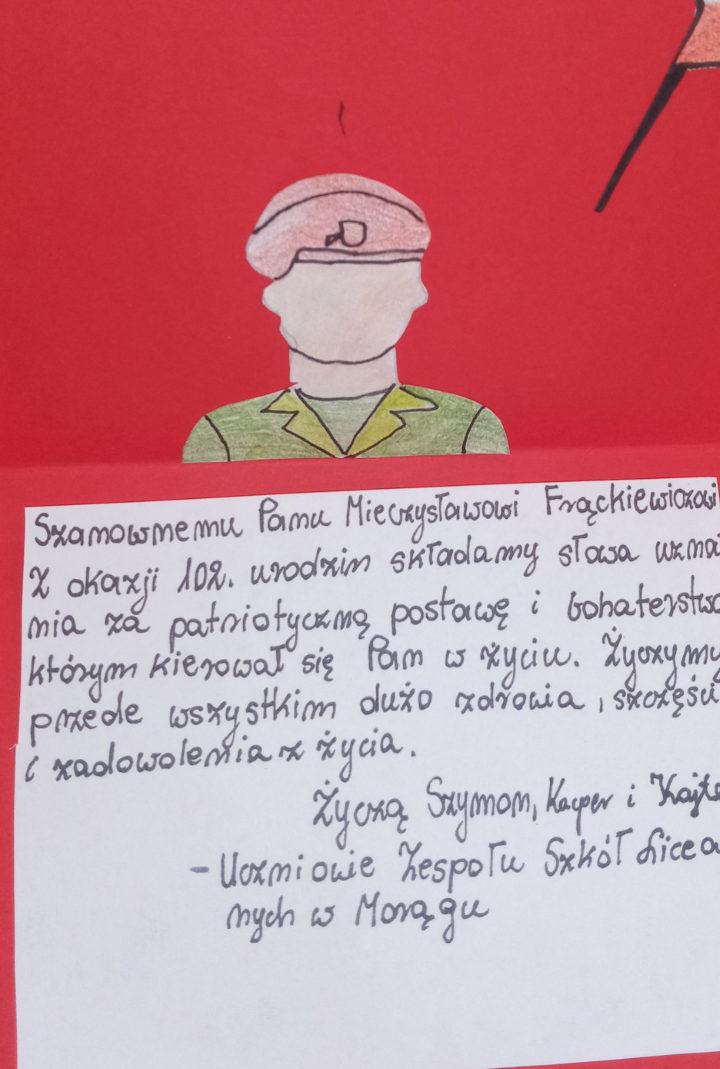 Szanownemu Panu Mieczysławowi Frąckiewiczowi
Z okazji 102. urodzin składamy słowa uzna
nia za patriotyczną postawę i bohaterstwo
którym kierował się Pan w życiu. Życzymy
przede wszystkim dużo zdrowia, szczęści
i zadowolenia z życia.
Życzą Szymon, Kacper i Kajte
- Uczniowie Zespołu Szkół Licea
nych w Morągu